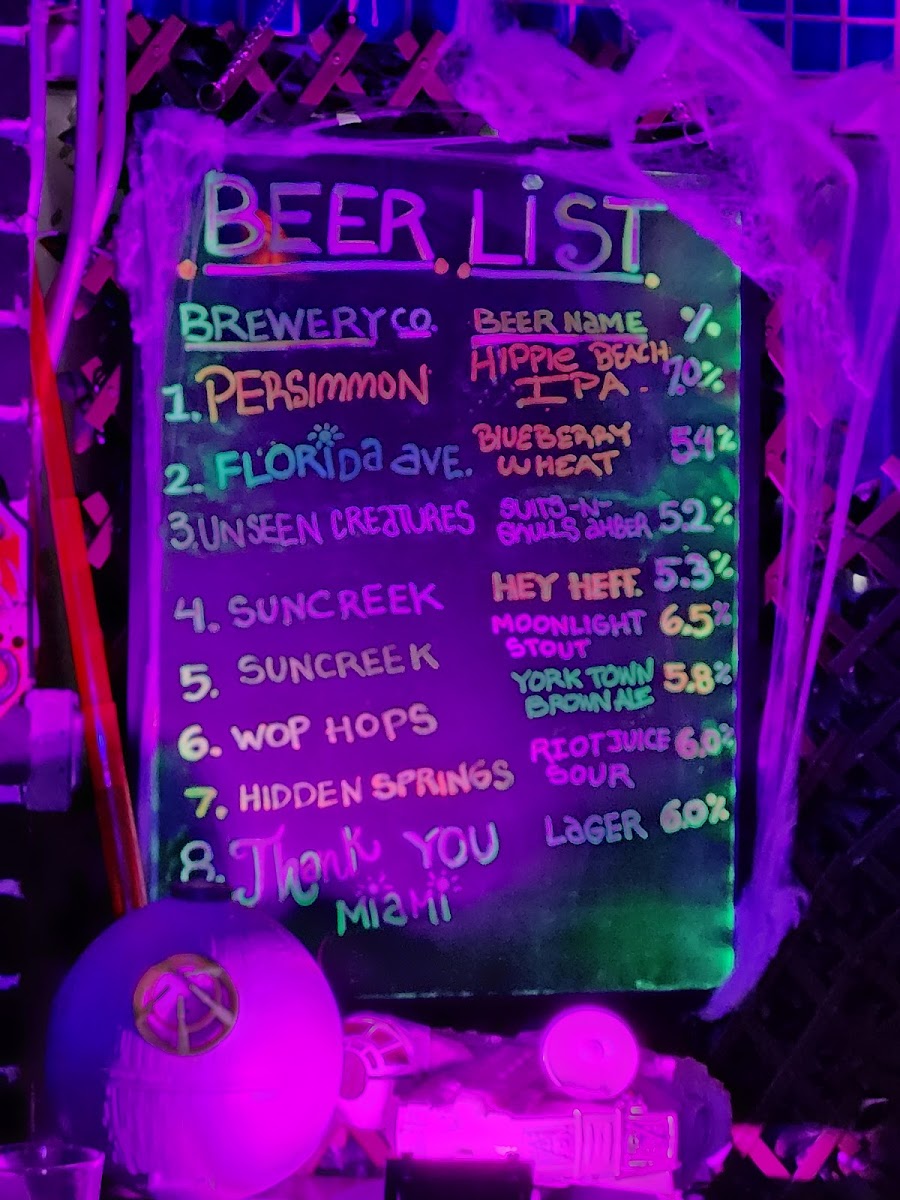 BEER LiST
BREWERY CO. BEER NaME %
1. PERSIMMON HIPPIe BEACH IPA - 7.0%
2. FLORIDa aVE. BLUEBERRY WHEAT 5.4%
3. UNSEEN CREaTURES SUITS-N- SKULLS aMBER 5.2%
4. SUNCREEK HEY HEFF. 5.3%
5. SUNCREEK MOONLIGHT STOUT 6.5%
6. WOP HOPS YORK TOWN BROWN ALE 5.8%
7. HIDDEN SPRINGS RIOT JUICE SOUR 6.0%
8. Thank YOU MiaMi LaGER 6.0%